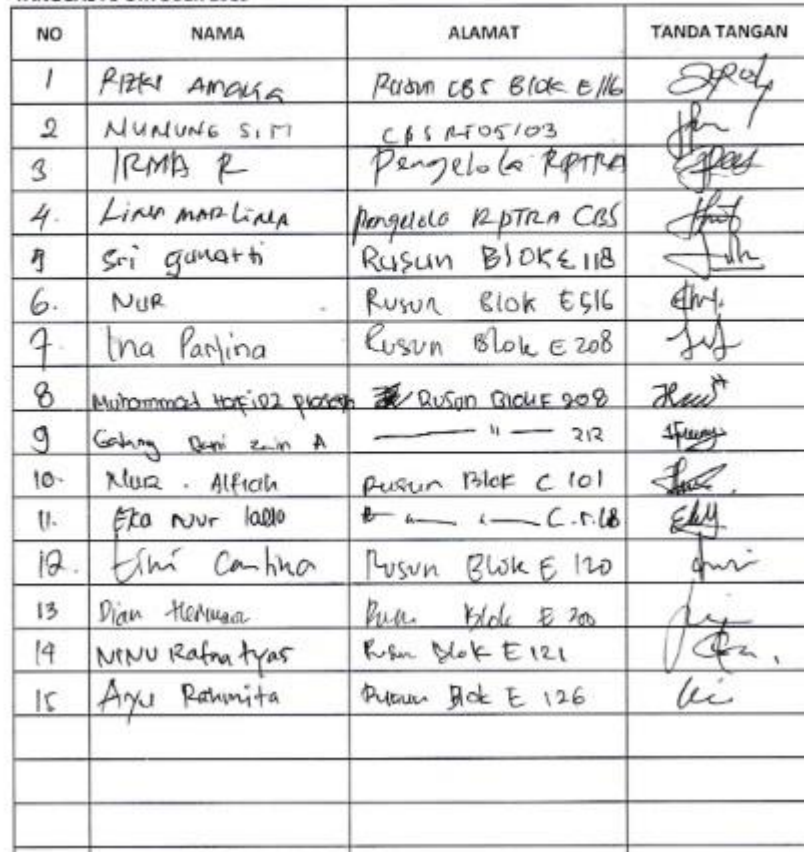 NO NAMA ALAMAT TANDA TANGAN
1 Rizki Amalia Rusun CBS Blok E/116
2 NUNUNG S.M CBS RT05/03
3 IRMA R Pengelola RPTRA
4. LINA MARLINA Pengelola RPTRA CBS
5 Sri gunarti Rusun Blok E 118
6. NUR Rusun Blok E516
7. Ina Parlina Rusun Blok E 208
8 Muhammad Hafidz Rusun Blok E 208
9 Galang Zain A 〃 212
10. Nur. Alfiah Rusun Blok C 101
11. Eka Nur
12. Cantina Rusun Blok E 120
13 Dian Blok E 200
14 NINU Ratna tyas Rusun Blok E 121
15 Ayu Rahmita Rusun Blok E 126